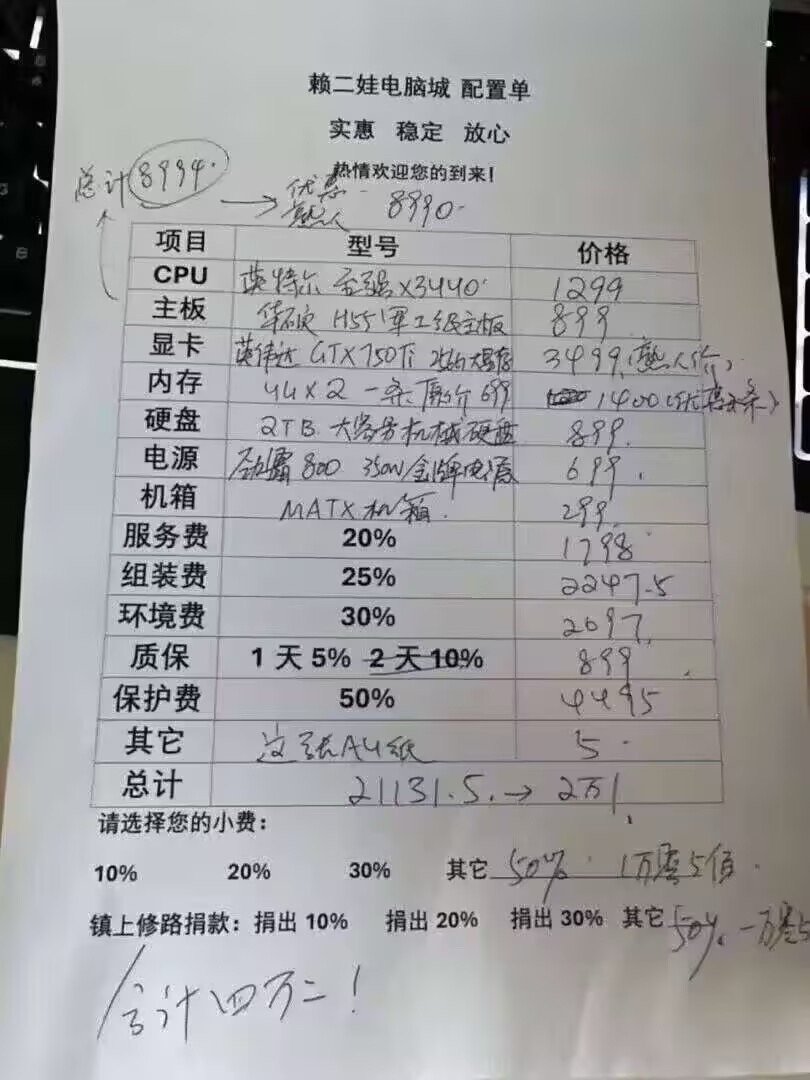 赖二娃电脑城 配置单
实惠 稳定 放心
热情欢迎您的到来!
总计 8994. → 优惠 熟人 8990.
项目 型号 价格
CPU 英特尔 至强X3440. 1299
主板 华硕 H55 军工级主板 899
显卡 英伟达 GTX750Ti 2G大显存 3499.(熟人价)
内存 4G×2 一条原价699 1400(优惠两条)
硬盘 2TB 大容量机械硬盘 899.
电源 劲霸800 350W金牌电源 699.
机箱 MATX机箱. 299.
服务费 20% 1798
组装费 25% 2247.5
环境费 30% 2697.
质保 1天5% 2天10% 899.
保护费 50% 4495
其它 这张A4纸 5.
总计 21131.5. → 2万1.
请选择您的小费:
10% 20% 30% 其它 50%. 1万零5佰.
镇上修路捐款: 捐出10% 捐出20% 捐出30% 其它 50%. 一万零5
合计四万二!